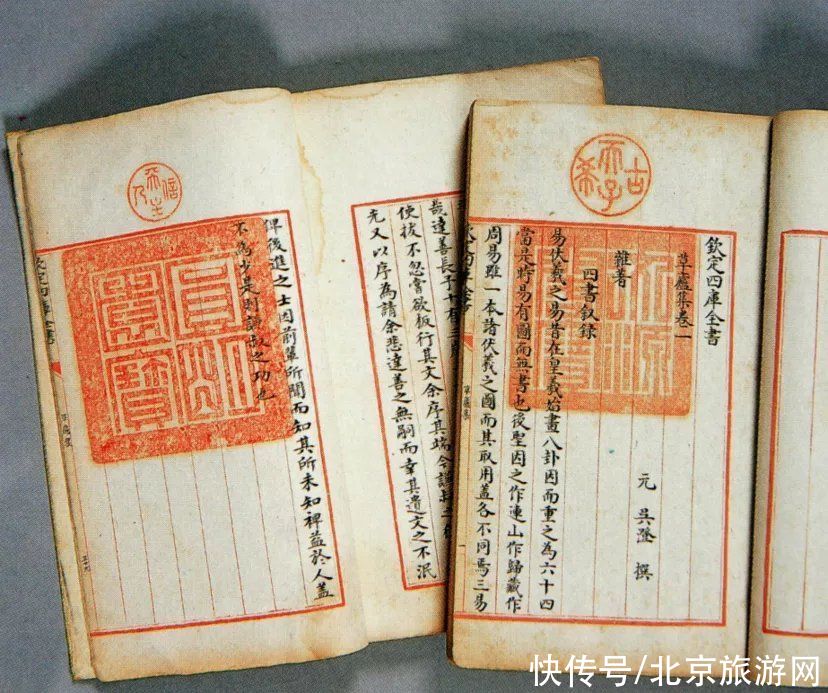 古希天子
文源閣寶
欽定四庫全書
草廬集卷一
元 吳澄 撰
雜著
四書叙錄
易伏羲之易昔在皇羲始畫八卦因而重之為六十四
當是時易有圖而無書也後聖因之作連山作歸藏作
周易雖一本諸伏羲之圖而其取用蓋各不同焉三易
哉達善長子
使拔不忽嘗欲板行其文余序其端今謹
先又以序為請余悲達善之無嗣而幸其遺文之不泯
信天主人
圓明園寶
俾後進之士因前輩所聞而知其所未知裨益於人蓋
不為少是則謹叔之功也
欽定四庫全書
快传号/北京旅游网